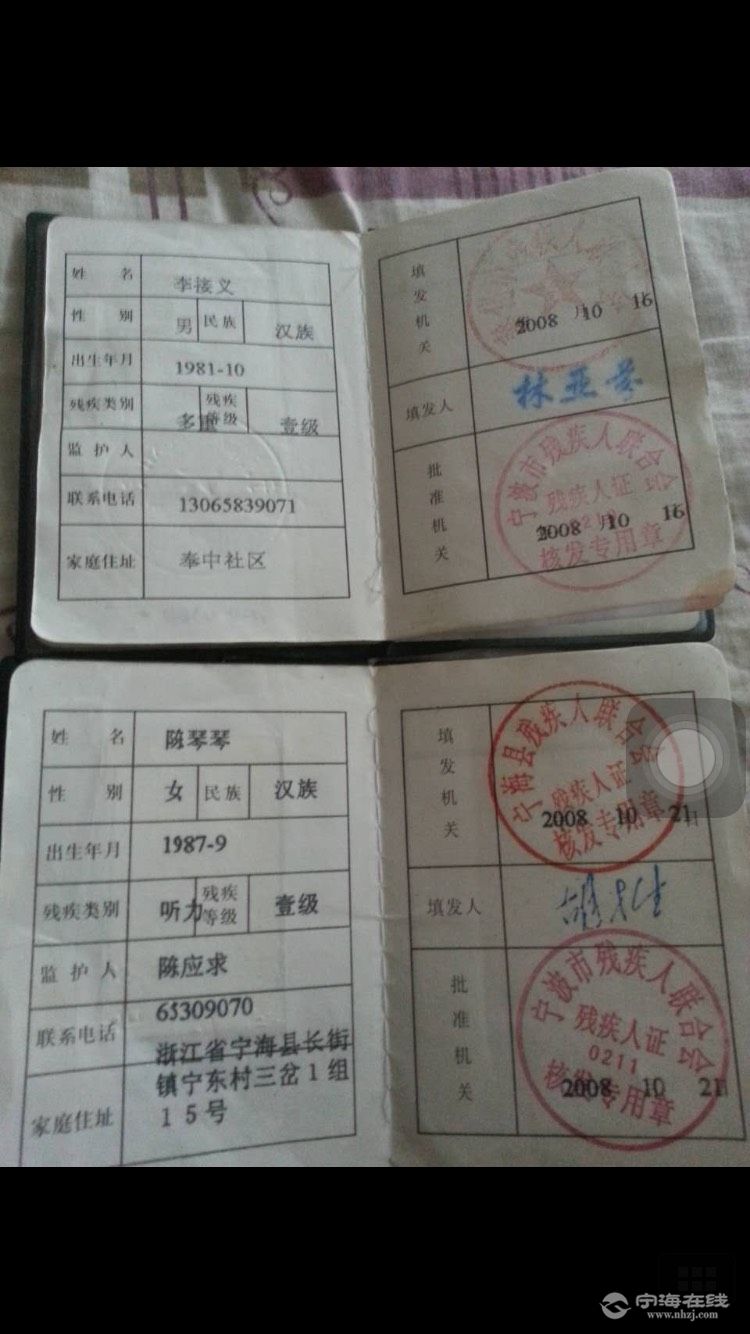 姓 名 李接义
性 别 男 民族 汉族
出生年月 1981-10
残疾类别 多重 残疾等级 壹级
监护人
联系电话 13065839071
家庭住址 奉中社区
填发机关
2008 月10 16
填发人 林亚芬
批准机关
宁波市残疾人联合会
残疾人证
2008 月10 16
核发专用章
姓 名 陈琴琴
性 别 女 民族 汉族
出生年月 1987-9
残疾类别 听力 残疾等级 壹级
监护人 陈应求
联系电话 65309070
家庭住址 浙江省宁海县长街
镇宁东村三岔1组
15号
填发机关
宁海县残疾人联合会
残疾人证
2008 10 21日
核发专用章
填发人
批准机关
宁波市残疾人联合会
残疾人证
0211
2008 10 21
核发专用章
宁海在线
www.nhzj.com